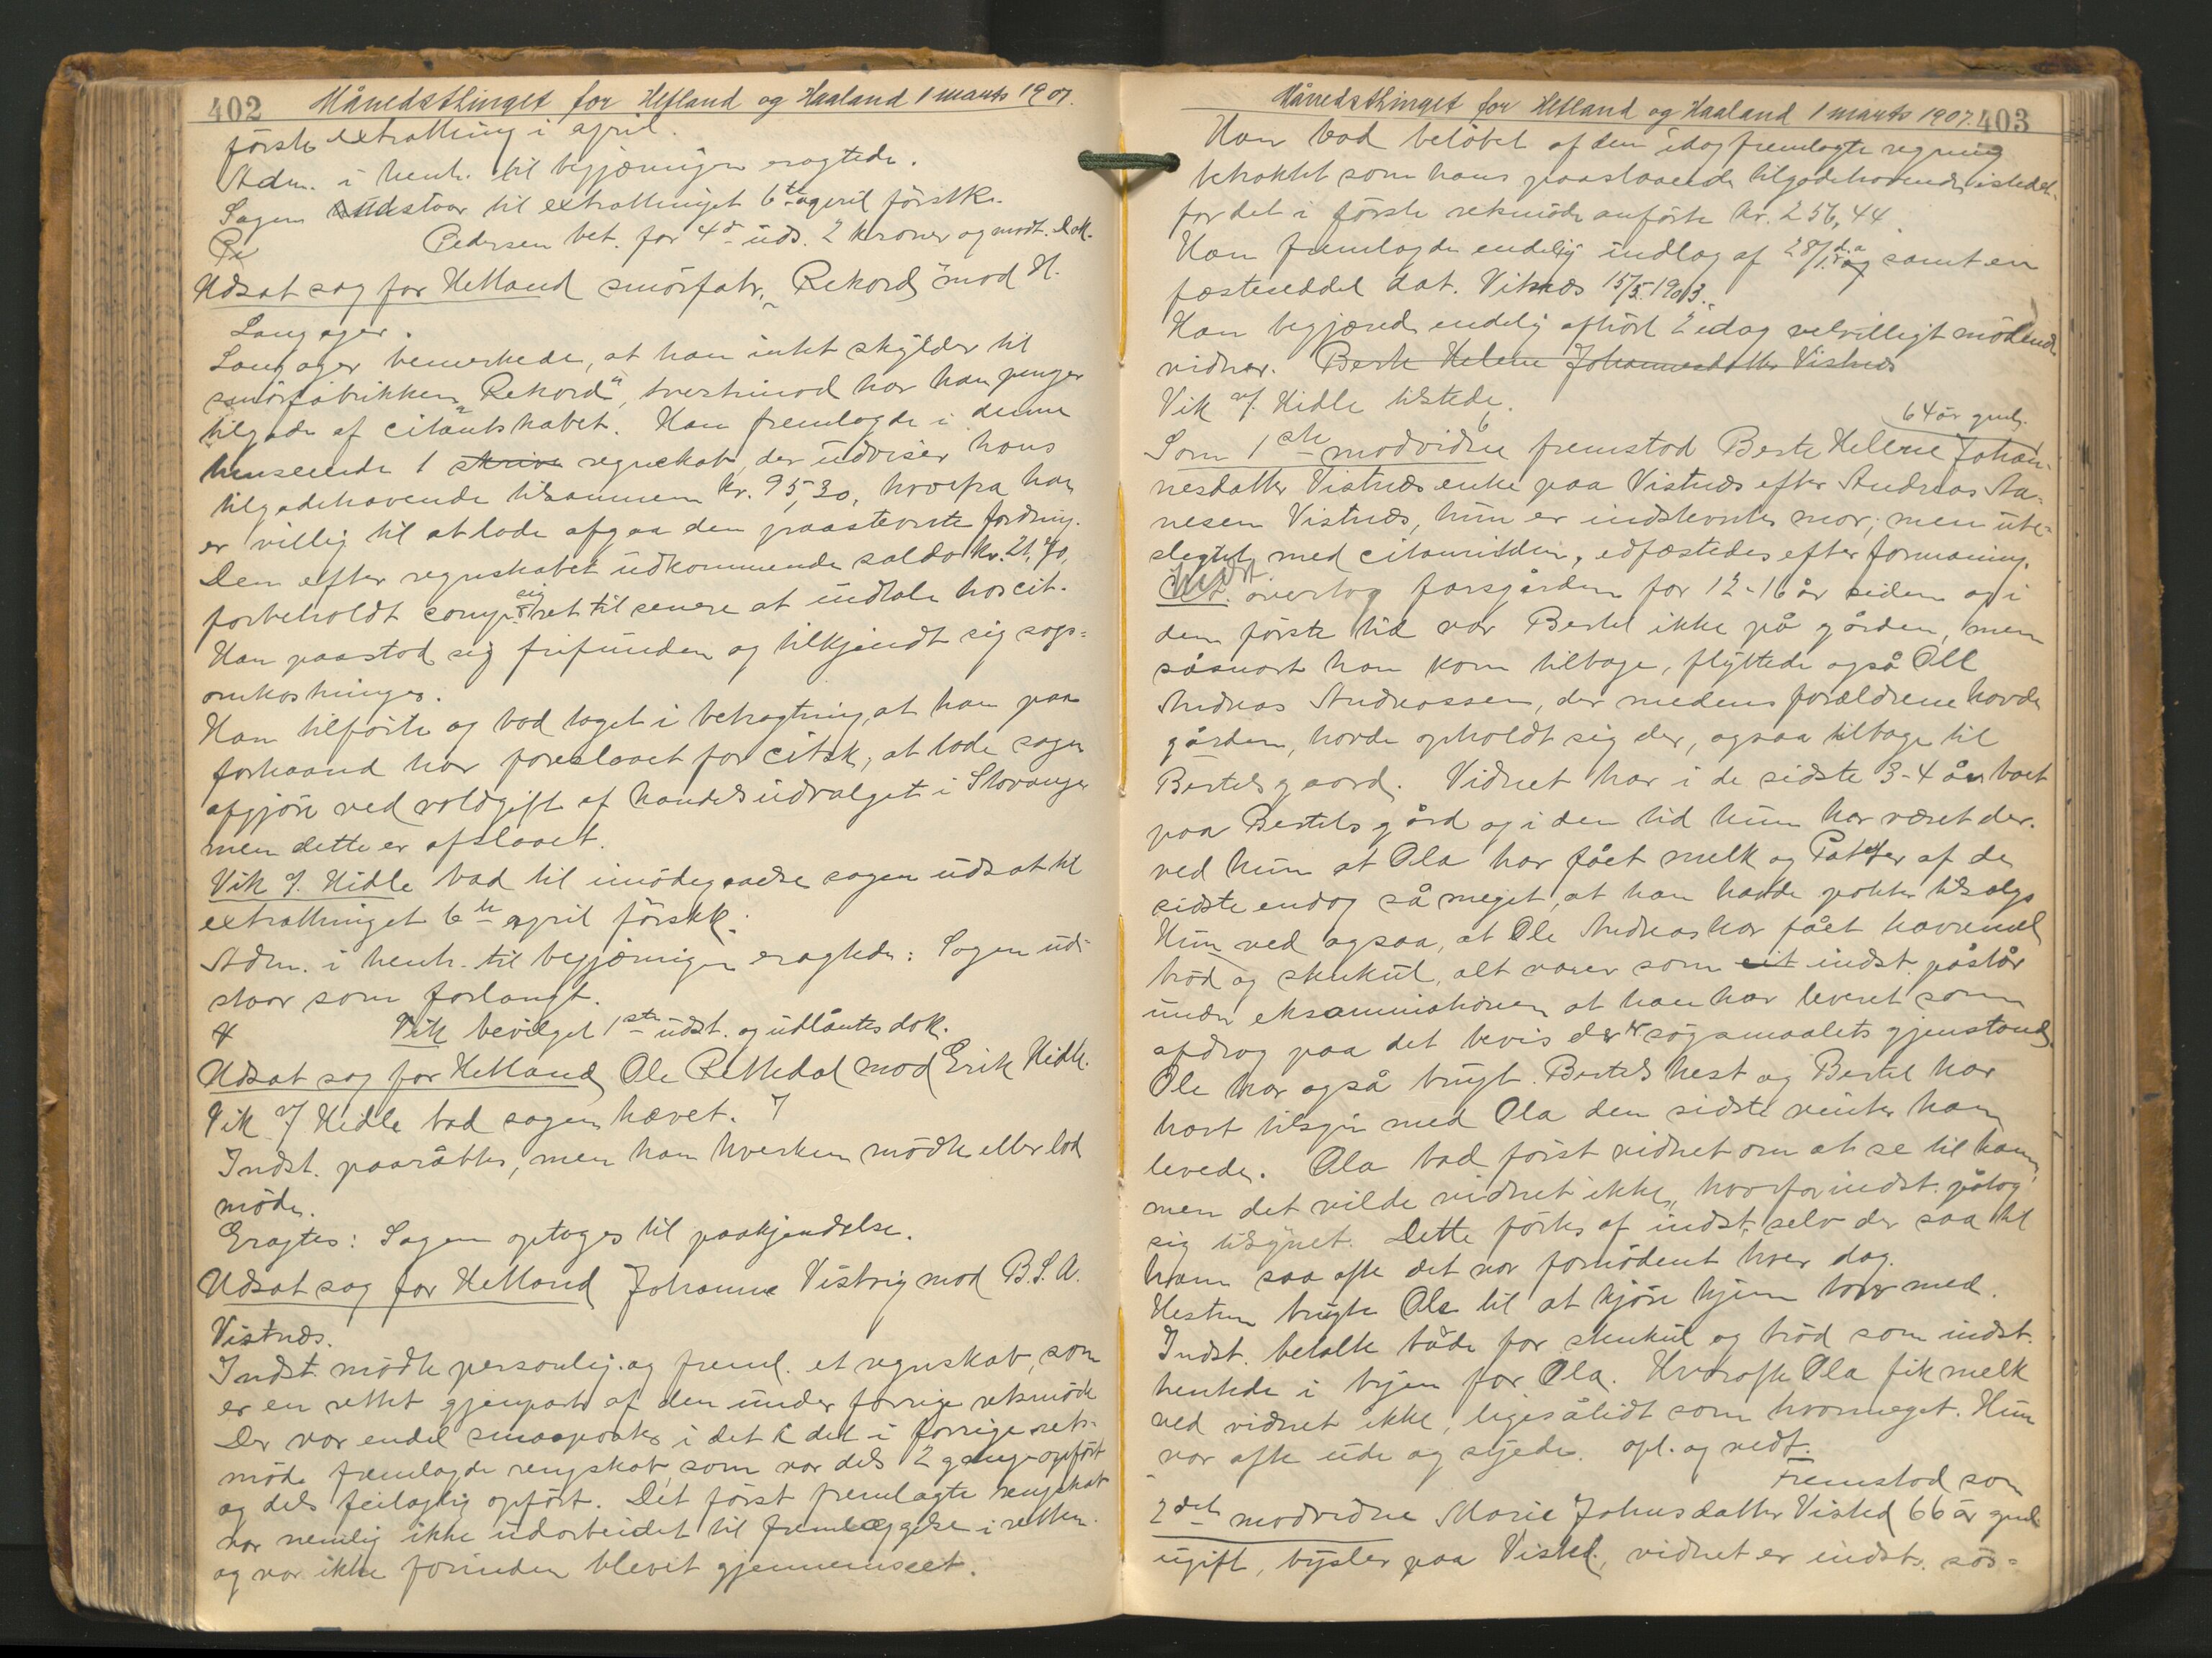 402 Månedsthinget for Hetland og Haaland 1 marts 1907.
første extratthing i april.
Adm. i henh. til begjæringen eragtede.
Sagen udstaar til extrathinget 6te april førstk.
Pedersen bet. for 4de uds. 2 kroner og modt. dok.
Udsat sag for Hetland smørfabr. "Rekord" mod H.
Langager.
Langager bemerkede, at han intet skylder til
smørfabrikken "Rekord", tvertimod har han penger
tilgode af citantskabet. Han fremlagde i denne
henseende 1 skrive regnskab, der udviser hans
tilgodehavende tilsammen kr. 95,30, hvorfra han
er villig til at lade afgaa den paastevnte fordring.
Den efter regnskabet udkommende saldo kr. 21,70,
forbeholdt comp. sig ret til senere at indtale hos cit.
Han paastod sig frifunden og tilkjendt sig sags-
omkostninger.
Han tilførte og bad taget i betragtning, at han paa
forhaand har foreslaaet for citsk, at lade sagen
afgjøre ved voldgift af handelsudvalget i Stavanger
men dette er afslaaet.
Vik f. Hidle bad til imødegaaelse sagen udsat til
extrathinget 6te april førstk.
Adm. i henh. til begjæringen eragtede: Sagen ud-
staar som forlangt.
Vik bevilget 1ste udst. og udlåntes dok.
Udsat sag for Hetland Ole Rettedal mod Erik Hidle.
Vik f Hidle bad sagen hævet.
Indst. paaråbtes, men han hverken mødte eller lod
møde.
Eragtes: Sagen optages til paakjendelse.
Udsat sag for Hetland Johanne Vistvig mod B.S.A.
Vistnæs.
Indst. mødte personlig og freml. et regnskab, som
er en rettet gjenpart af den under forrige retsmøde
Der var endel smaaposter i det i det i forrige rets-
møde fremlagde rengskab som var dels 2 gange opført
og dels feilagtig opført. Det først fremlagte rengskab
var nemlig ikke udarbeidet til fremlæggelse i retten
og var ikke forinden blevet gjennemseet.
Månedsthinget for Hetland og Haaland 1 marts 1907. 403
Han bad beløbet af den idag fremlagte regning
betraktet som hans paastaaende tilgodehavende istedet-
for det i første retsmøde anførte kr. 256,44.
Han fremlagde endelig indlag af 28/1 d.a. samt en
fæsteseddel dat. Vitnæs 15/5 1903.
Han begjærede endelig afhørt 2 idag velvilligt mødende
vidner. Berte Helene Johannesdatter Vistnæs
Vik f. Hidle tilstede.
64 år gml.
Som 1ste modvidne fremstod Berte Helene Johan-
nesdatter Vistnæs enke paa Vistnæs efter Andreas Aa-
nesen Vistnæs, hun er indstevntes mor, men ube-
slegtet med citantinden, edfæstedes efter formaning.
Indst. overtog farsgården for 12-16 år siden og i
den første tid var Bertel ikke på gården, men
såsnart han kom tilbage, flyttede også Oll
Andreas Andreassen, der medens forældrene havde
gården, havde opholdt sig der, ogsaa tilbage til
Bertels gaard. Vidnet har i de sidste 3-4 år boet
paa Bertels gård og i den tid hun har været der.
ved hun at Ola har fået melk og Patater af de
sidste endog så meget, at han havde poteter tilsalgs
Hun ved ogsaa, at Ole Andreas har fået havremel
brød og stenkul, alt varer som cit indst. påstår
under eksaminationen at han har leveret som
afdrag paa det bevis der er søgsmaalets gjenstand.
Ole har også brugt Bertels hest og Bertel har
havt tilsyn med Ola den sidste vinter han
levede. Ola bad først vidnet om at se til ham,
men det vilde vidnet ikke, hvorfor indst. påtog
sig tilsynet. Dette førtes af indst. selv der saa til
ham saa ofte det var fornødent hver dag.
Hesten brugte Ole til at kjøre hjem torv med.
Indst. betalte både for stenkul og brød som indst.
hentede i byen for Ola. Hvorofte Ola fik melk
ved vidnet ikke, ligesålidt som hvormeget. Hun
var ofte ude og syede. opl. og vedt.
Fremstod som
2det modvidne Marie Johnsdatter Visted 66 år gml.
ugift, bysler paa Visted, vidnet er indst. søs-